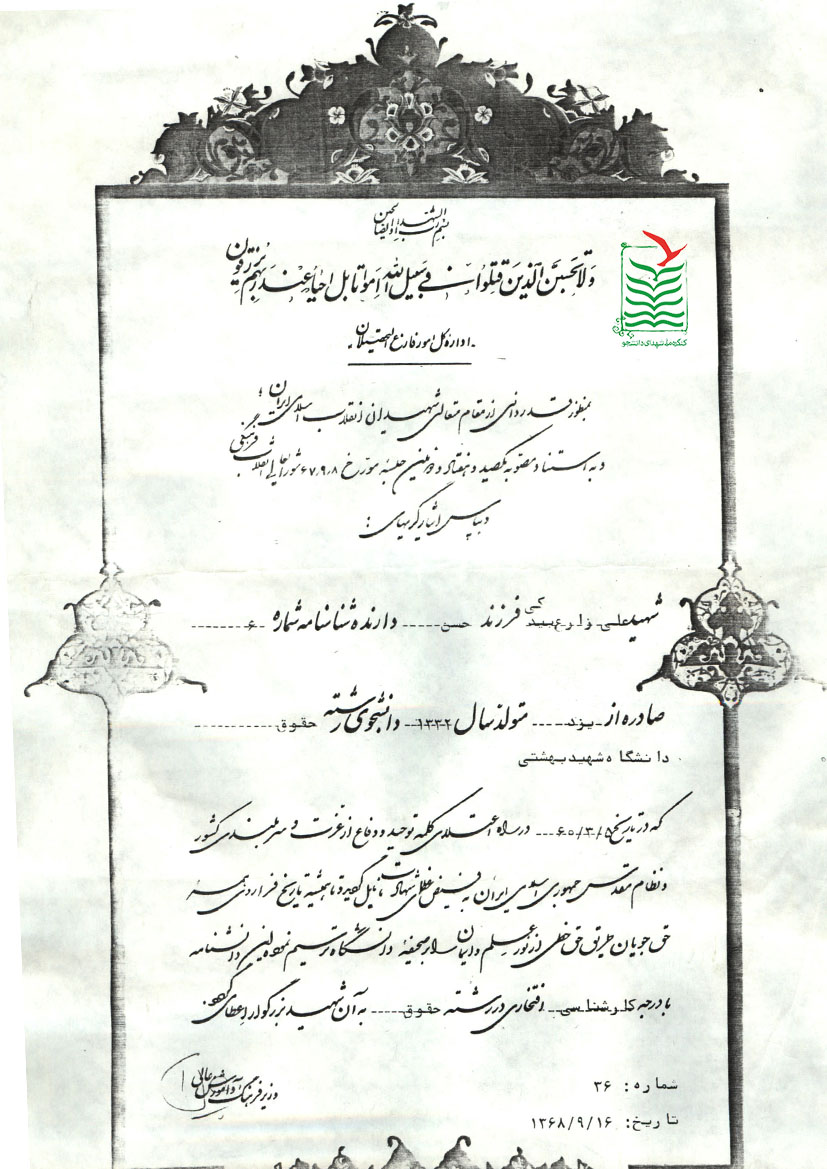 بسم رب الشهداء والصالحین
ولا تحسبن الذین قتلوا فی سبیل الله امواتا بل احیاء عند ربهم یرزقون
کنگره ملی شهدای دانشجو
اداره کل امور فارغ التحصیلان
بمنظور قدردانی از مقام متعالی شهیدان انقلاب اسلامی ایران ؛
و به استناد مصوبه یکصید و هفتاد و دومین جلسه مورخ ۶۷/۹/۸ شورایعالی انقلاب فرهنگی
و بپاس ایثارگریهای :
شهید علی زارع بیدکی فرزند حسن دارنده شناسنامه شماره ۶
صادره از یزد متولد سال ۱۳۳۲ دانشجوی رشته حقوق
دانشگاه شهید بهشتی
که در تاریخ ۶۰/۳/۵ در راه اعتلای کلمه توحید و دفاع از عزت و سربلندی کشور
و نظام مقدس جمهوری اسلامی ایران به فیض عظمای شهادت نایل گردید و تا همیشه تاریخ فرا روی همه
حق جویان طریق حق خطی از نور علم و ایمان بر صحیفه دانشگاه ترسیم نمود این دانشنامه
با درجه کارشناسی افتخاری در رشته حقوق به آن شهید بزرگوار اعطا می گردد.
وزیر فرهنگ و آموزش عالی
شماره: ۳۶
تاریخ: ۱۳۶۸/۹/۱۶